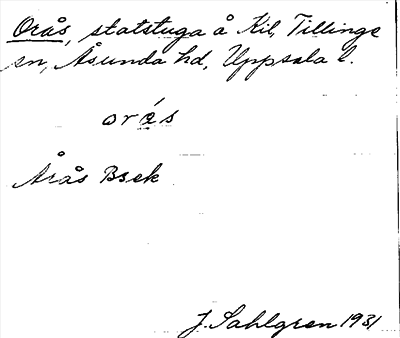 Orås, statstuga å Kil, Tillinge
sn, Åsunda hd, Uppsala l.
orås
Årås Bsek
J. Sahlgren 1931